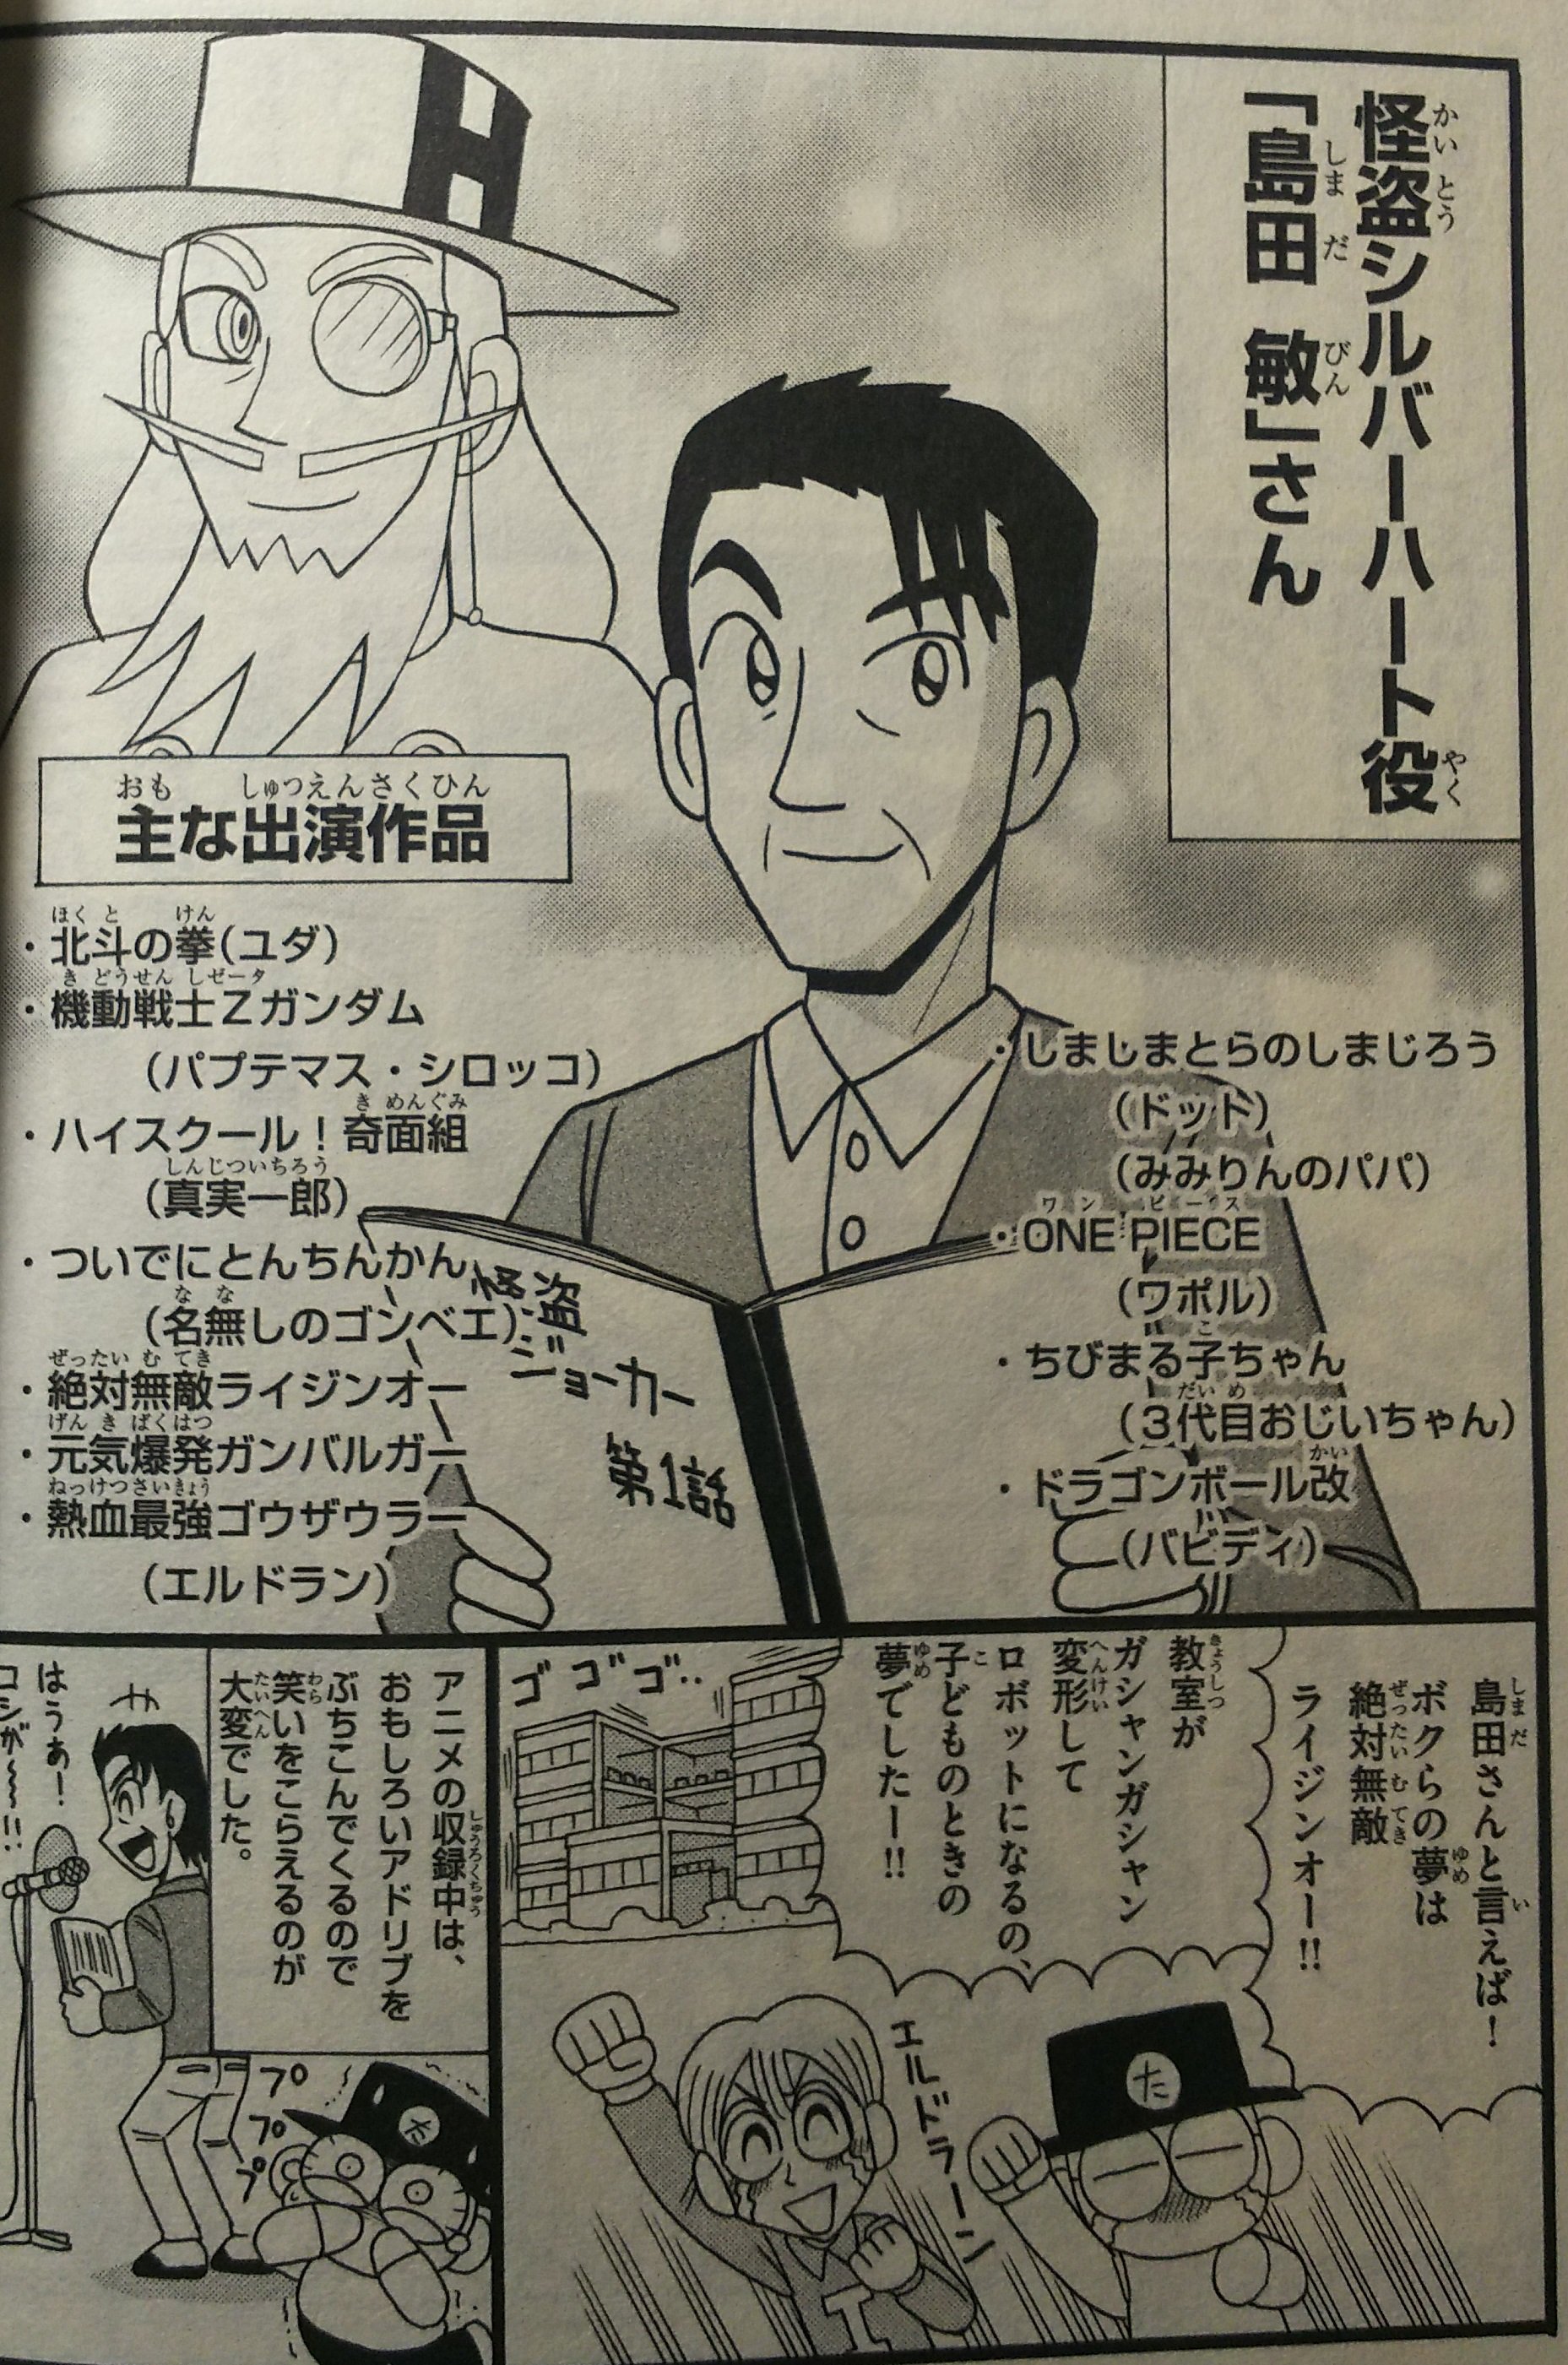 怪盗シルバーハート役
「島田 敏」さん
主な出演作品
・北斗の拳(ユダ)
・機動戦士Zガンダム
(パプテマス・シロッコ)
・ハイスクール!奇面組
(真実一郎)
・ついでにとんちんかん
(名無しのゴンベエ)
・絶対無敵ライジンオー
・元気爆発ガンバルガー
・熱血最強ゴウザウラー
(エルドラン)
・しましまとらのしまじろう
(ドット)
(みみりんのパパ)
・ONE PIECE
(ワポル)
・ちびまる子ちゃん
(3代目おじいちゃん)
・ドラゴンボール改
(バビディ)
怪盗
ジョーカー
第1話
島田さんと言えば!
ボクらの夢は
絶対無敵
ライジンオー!!
教室が
ガシャンガシャン
変形して
ロボットになるの、
子どものときの
夢でしたー!!
ゴゴゴ‥
エルドラーン
た
エ
アニメの収録中は、
おもしろいアドリブを
ぶちこんでくるので
笑いをこらえるのが
大変でした。
はうぁ!
コシが〜〜!!
プププ